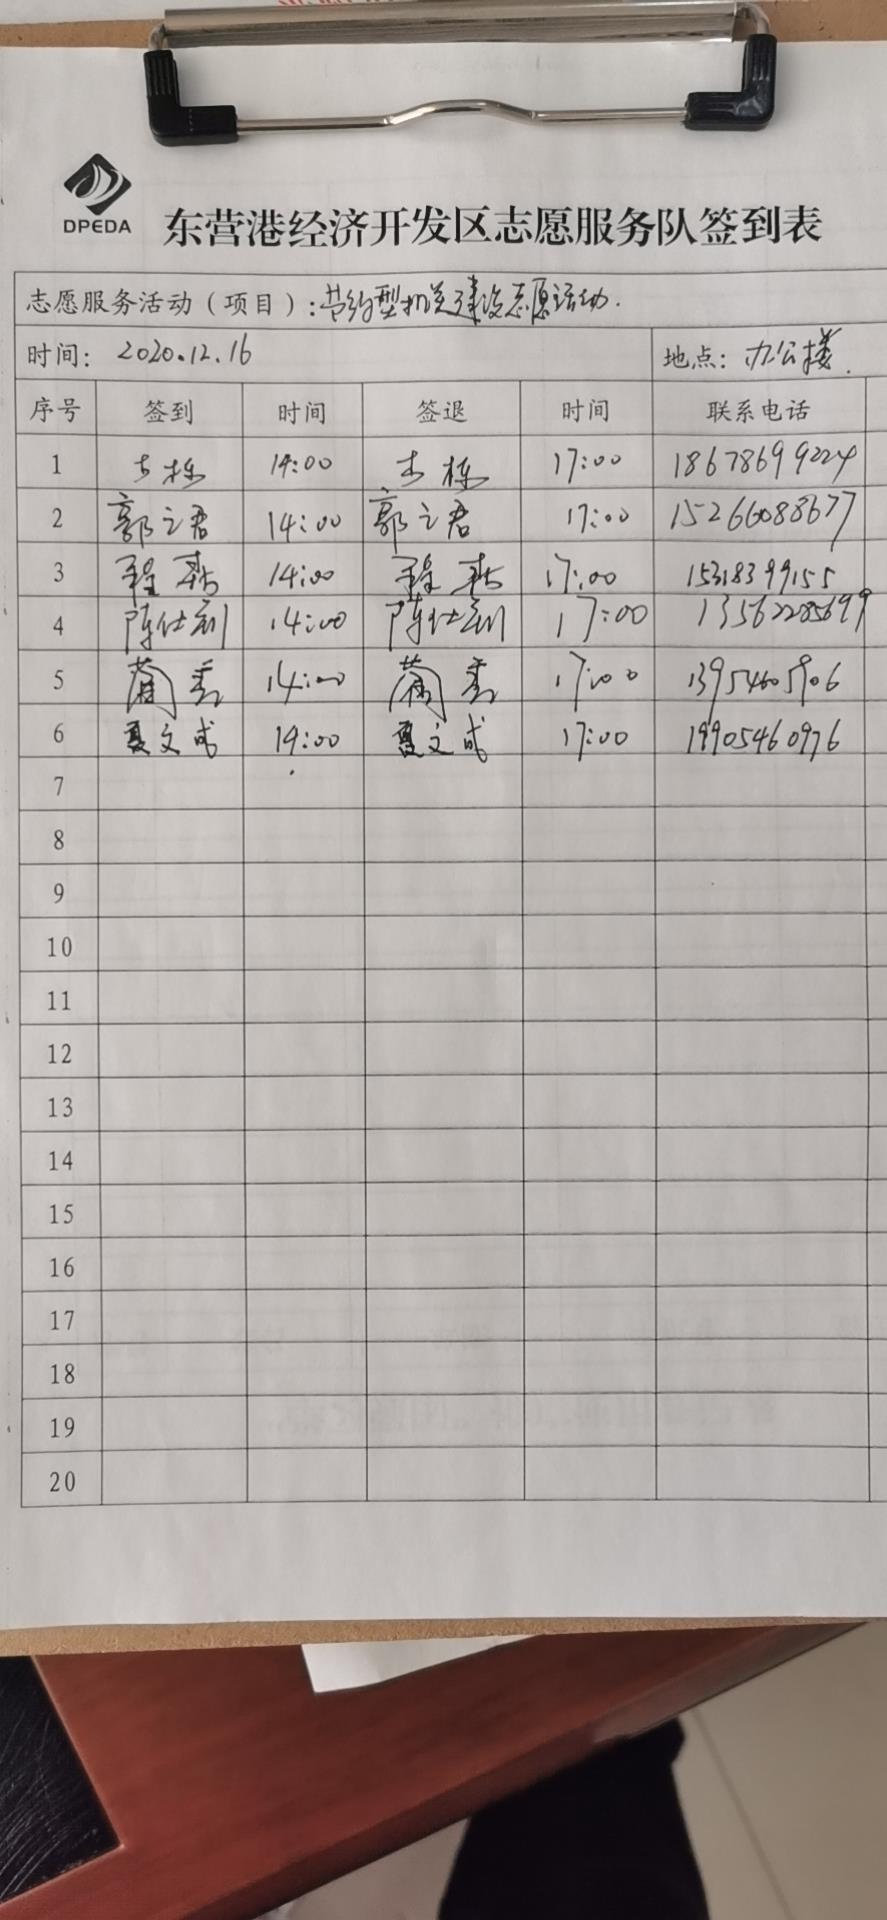 DPEDA
东营港经济开发区志愿服务队签到表
志愿服务活动（项目）：节约型机关建设志愿活动.
时间： 2020.12.16 地点：办公楼.
序号 签到 时间 签退 时间 联系电话
1 栋 14:00 栋 17:00 18678699224
2 郭之君 14:00 郭之君 17:00 15266088677
3 程 14:00 程 17:00 15318399155
4 陈仕利 14:00 陈仕利 17:00 13562285699
5 14:00 17:00 13954605906
6 夏文成 14:00 夏文成 17:00 19905460976
7
8
9
10
11
12
13
14
15
16
17
18
19
20